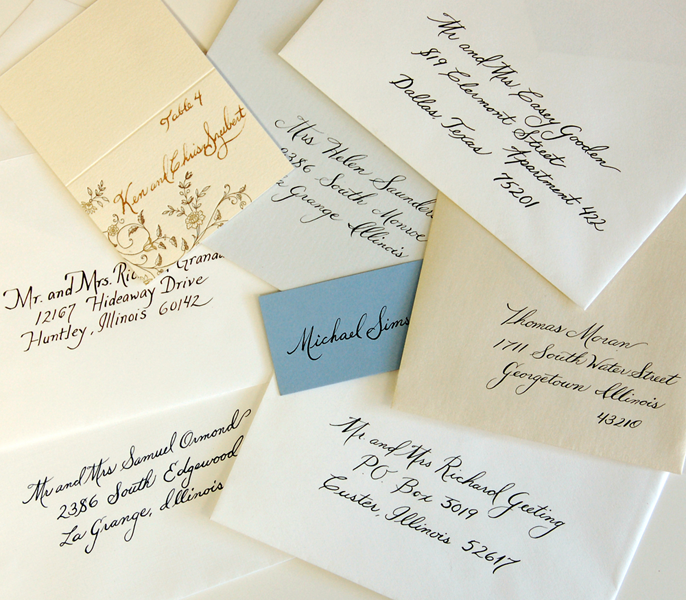 Table 4
Ken and Chris Syebert
Mrs Helen Saunders
2386 South Monroe
La Grange Illinois
Mr and Mrs Casey Gooden
819 Clermont Street
Apartment 422
Dallas Texas
75201
Mr. and Mrs. Grana
12167 Hideaway Drive
Huntley, Illinois 60142
Michael Sims
Thomas Moran
1711 South Water Street
Georgetown Illinois
43210
Mr and Mrs Samuel Ormond
2386 South Edgewood
La Grange, Illinois
Mr and Mrs Richard Geeting
P.O. Box 5019
Custer, Illinois 52617